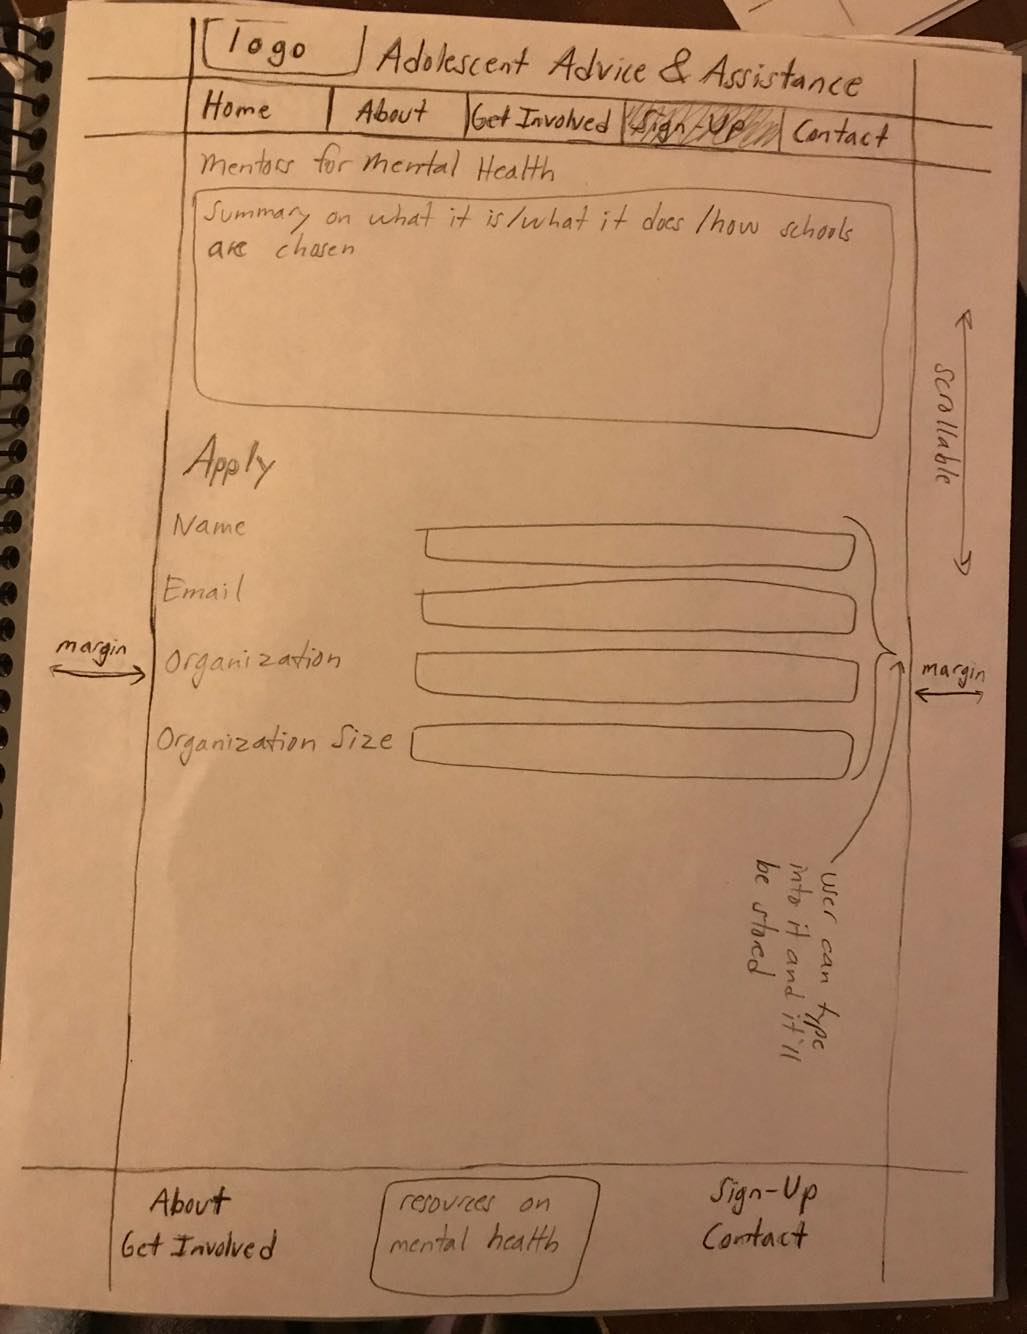 Logo
Adolescent Advice & Assistance
Home
About
Get Involved
Sign-Up
Contact
Mentors for Mental Health
Summary on what it is/what it does/how schools
are chosen
scrollable
Apply
Name
Email
margin
Organization
margin
Organization Size
user can type
into it and it'll
be stored
About
Get Involved
resources on
mental health
Sign-Up
Contact